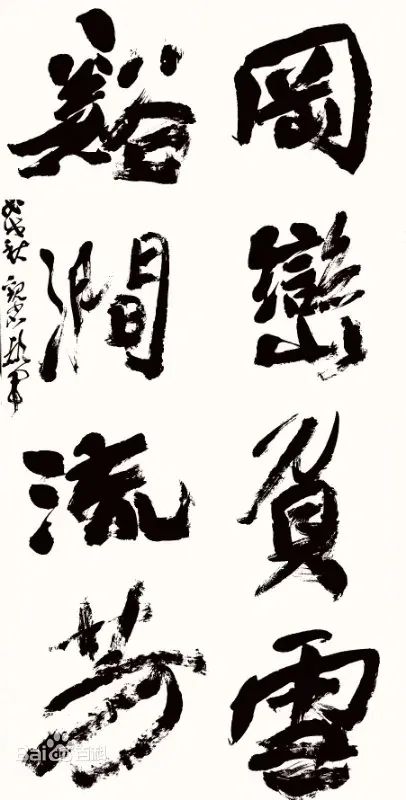 岡巒負雪
谿澗流芳
戊戌秋
Bai百科